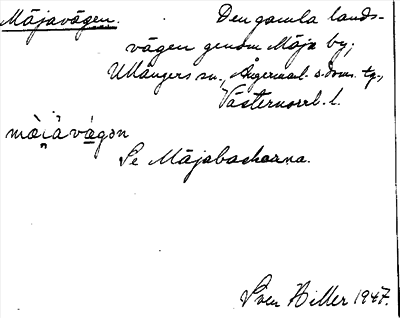 Mäjavägen. Den gamla lands-
vägen genom Mäja by,
Ullångers sn., Ångermal. s. dom. tg.,
Västernorrl. l.
Se Mäjabackarna.
Sven Hiller 1947.